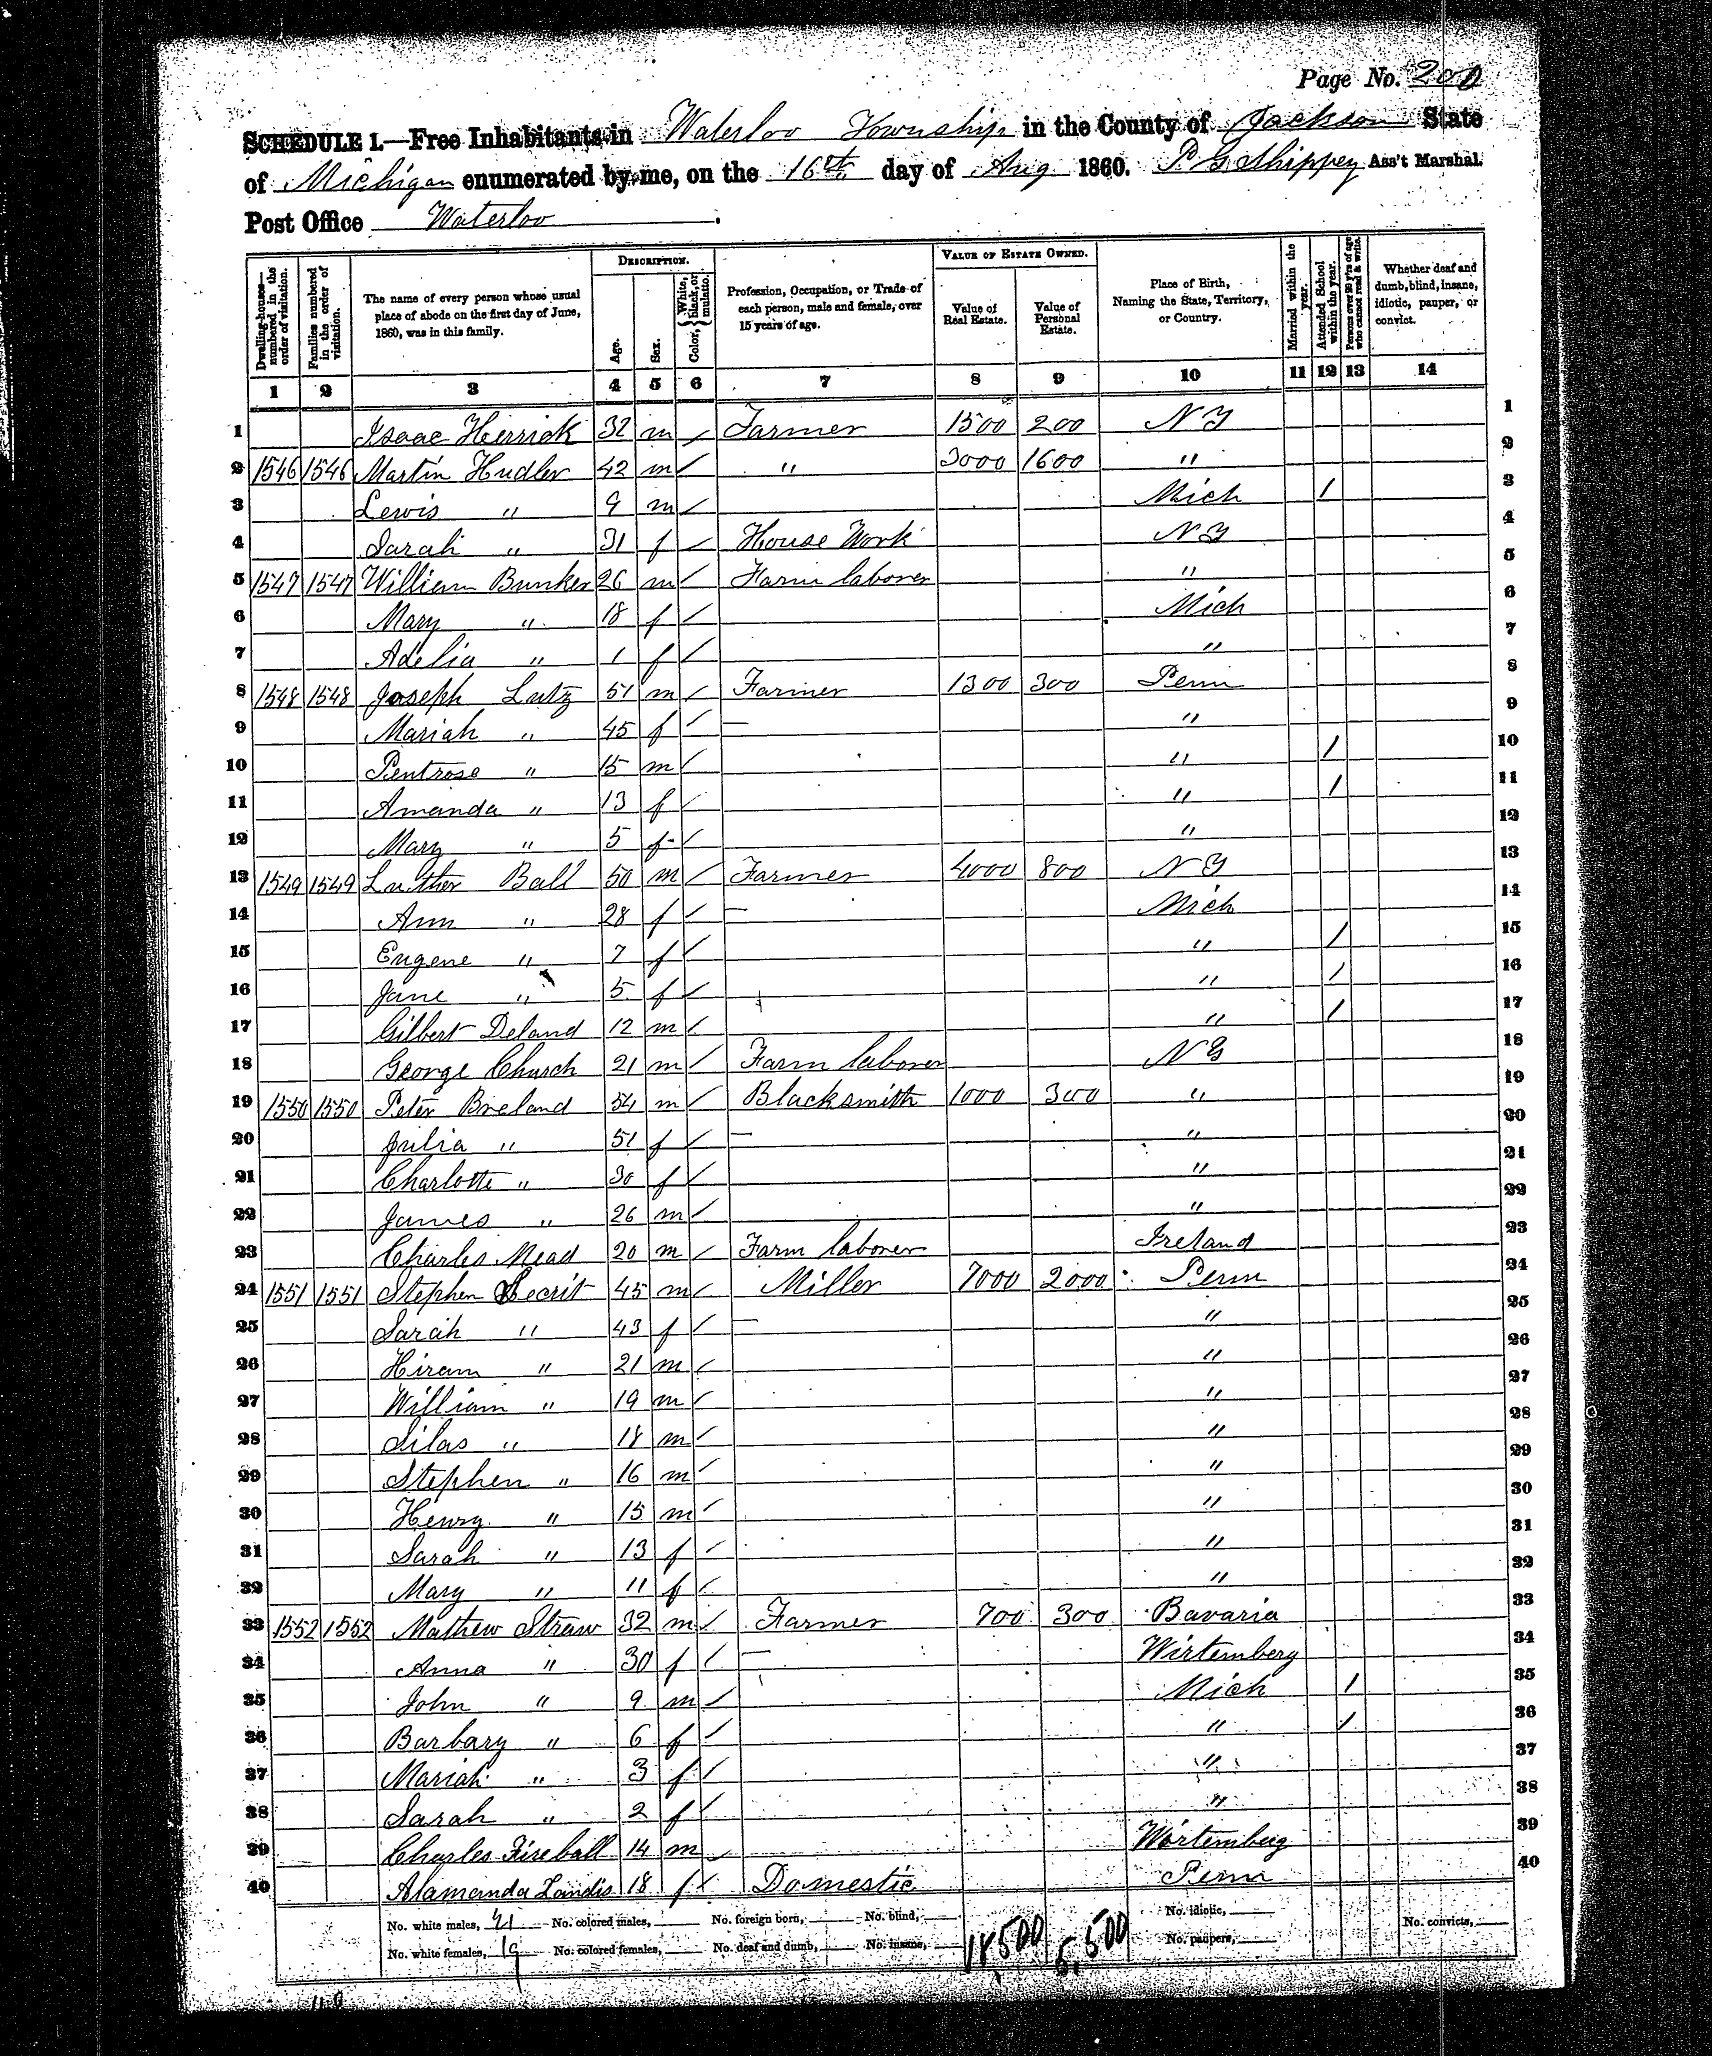 Page No. 200
SCHEDULE 1.—Free Inhabitants in Waterloo Township in the County of Jackson State
of Michigan enumerated by me, on the 16th day of Aug 1860. P G Shippey Ass't Marshal.
Post Office Waterloo.
Dwelling-houses—numbered in the order of visitation. Families numbered in the order of visitation. The name of every person whose usual place of abode on the first day of June, 1860, was in this family. DESCRIPTION. Age. Sex. Color, {White, black, or mulatto. Profession, Occupation, or Trade of each person, male and female, over 15 years of age. VALUE OF ESTATE OWNED. Value of Real Estate. Value of Personal Estate. Place of Birth, Naming the State, Territory, or Country. Married within the year. Attended School within the year. Persons over 20 y'rs of age who cannot read & write. Whether deaf and dumb, blind, insane, idiotic, pauper, or convict.
1 2 3 4 5 6 7 8 9 10 11 12 13 14
1 Isaac Herrick 32 m / Farmer 1500 200 N Y 1
2 1546 1546 Martin Hudler 42 m / " 3000 1600 " 2
3 Lewis " 9 m / Mich / 3
4 Sarah " 31 f / House Work N Y 4
5 1547 1547 William Bunker 26 m / Farm laborer " 5
6 Mary " 18 f / Mich 6
7 Adelia " 1 f / " 7
8 1548 1548 Joseph Lutz 51 m / Farmer 1300 300 Penn 8
9 Mariah " 45 f / — " 9
10 Pentrose " 15 m / " / 10
11 Amanda " 13 f / " / 11
12 Mary " 5 f / " 12
13 1549 1549 Luther Ball 50 m / Farmer 4000 800 N Y 13
14 Ann " 28 f / — Mich 14
15 Eugene " 7 f / " / 15
16 Jane " 5 f / " / 16
17 Gilbert Deland 12 m / " / 17
18 George Church 21 m / Farm laborer N Y 18
19 1550 1550 Peter Breland 54 m / Blacksmith 1000 300 " 19
20 Julia " 51 f / — " 20
21 Charlotte " 30 f / " 21
22 James " 26 m / " 22
23 Charles Mead 20 m / Farm laborer Ireland 23
24 1551 1551 Stephen Secrit 45 m / Miller 7000 2000 Penn 24
25 Sarah " 43 f / — " 25
26 Hiram " 21 m / " 26
27 William " 19 m / " 27
28 Silas " 18 m / " 28
29 Stephen " 16 m / " 29
30 Henry " 15 m / " 30
31 Sarah " 13 f / " 31
32 Mary " 11 f / " 32
33 1552 1552 Mathew Straw 32 m / Farmer 700 300 Bavaria 33
34 Anna " 30 f / — Wirtemberg 34
35 John " 9 m / Mich / 35
36 Barbary " 6 f / " / 36
37 Mariah " 3 f / " 37
38 Sarah " 2 f / " 38
39 Charles Fireball 14 m / Wirtemberg 39
40 Alamanda Landis 18 f / Domestic Penn 40
No. white males, 21 No. colored males, No. foreign born, No. blind, No. idiotic, No. convicts,
No. white females, 19 No. colored females, No. deaf and dumb, No. insane, 18,500 5,500 No. paupers,